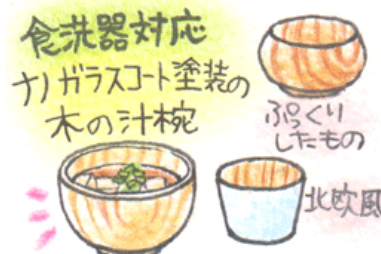 食洗器対応
ナノガラスコート塗装の
木の汁椀
ぷっくり
したもの
北欧風